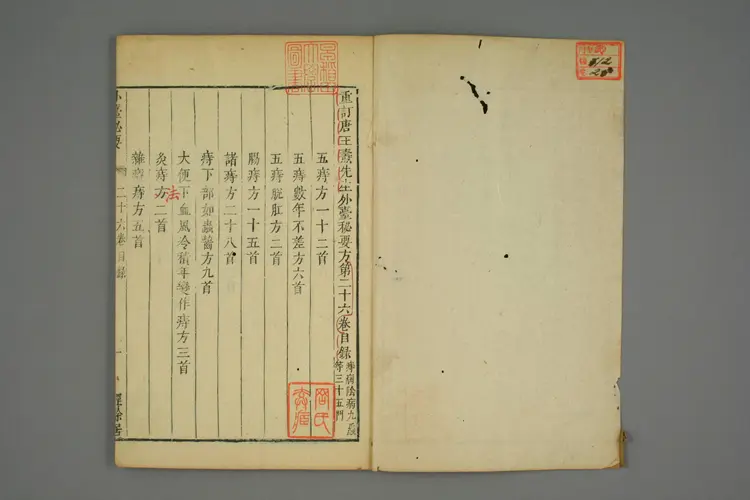 重訂唐王燾先生外臺秘要方第二十六卷目錄 痔病陰病九蟲等三十五門
五痔方一十二首
五痔數年不差方六首
五痔脫肛方二首
腸痔方一十五首
諸痔方二十八首
痔下部如蟲齧方九首
大便下血風冷積年變作痔方三首
灸痔方二首
法
雜痔方五首
外臺秘要 二十六卷目錄 一 經餘居
612